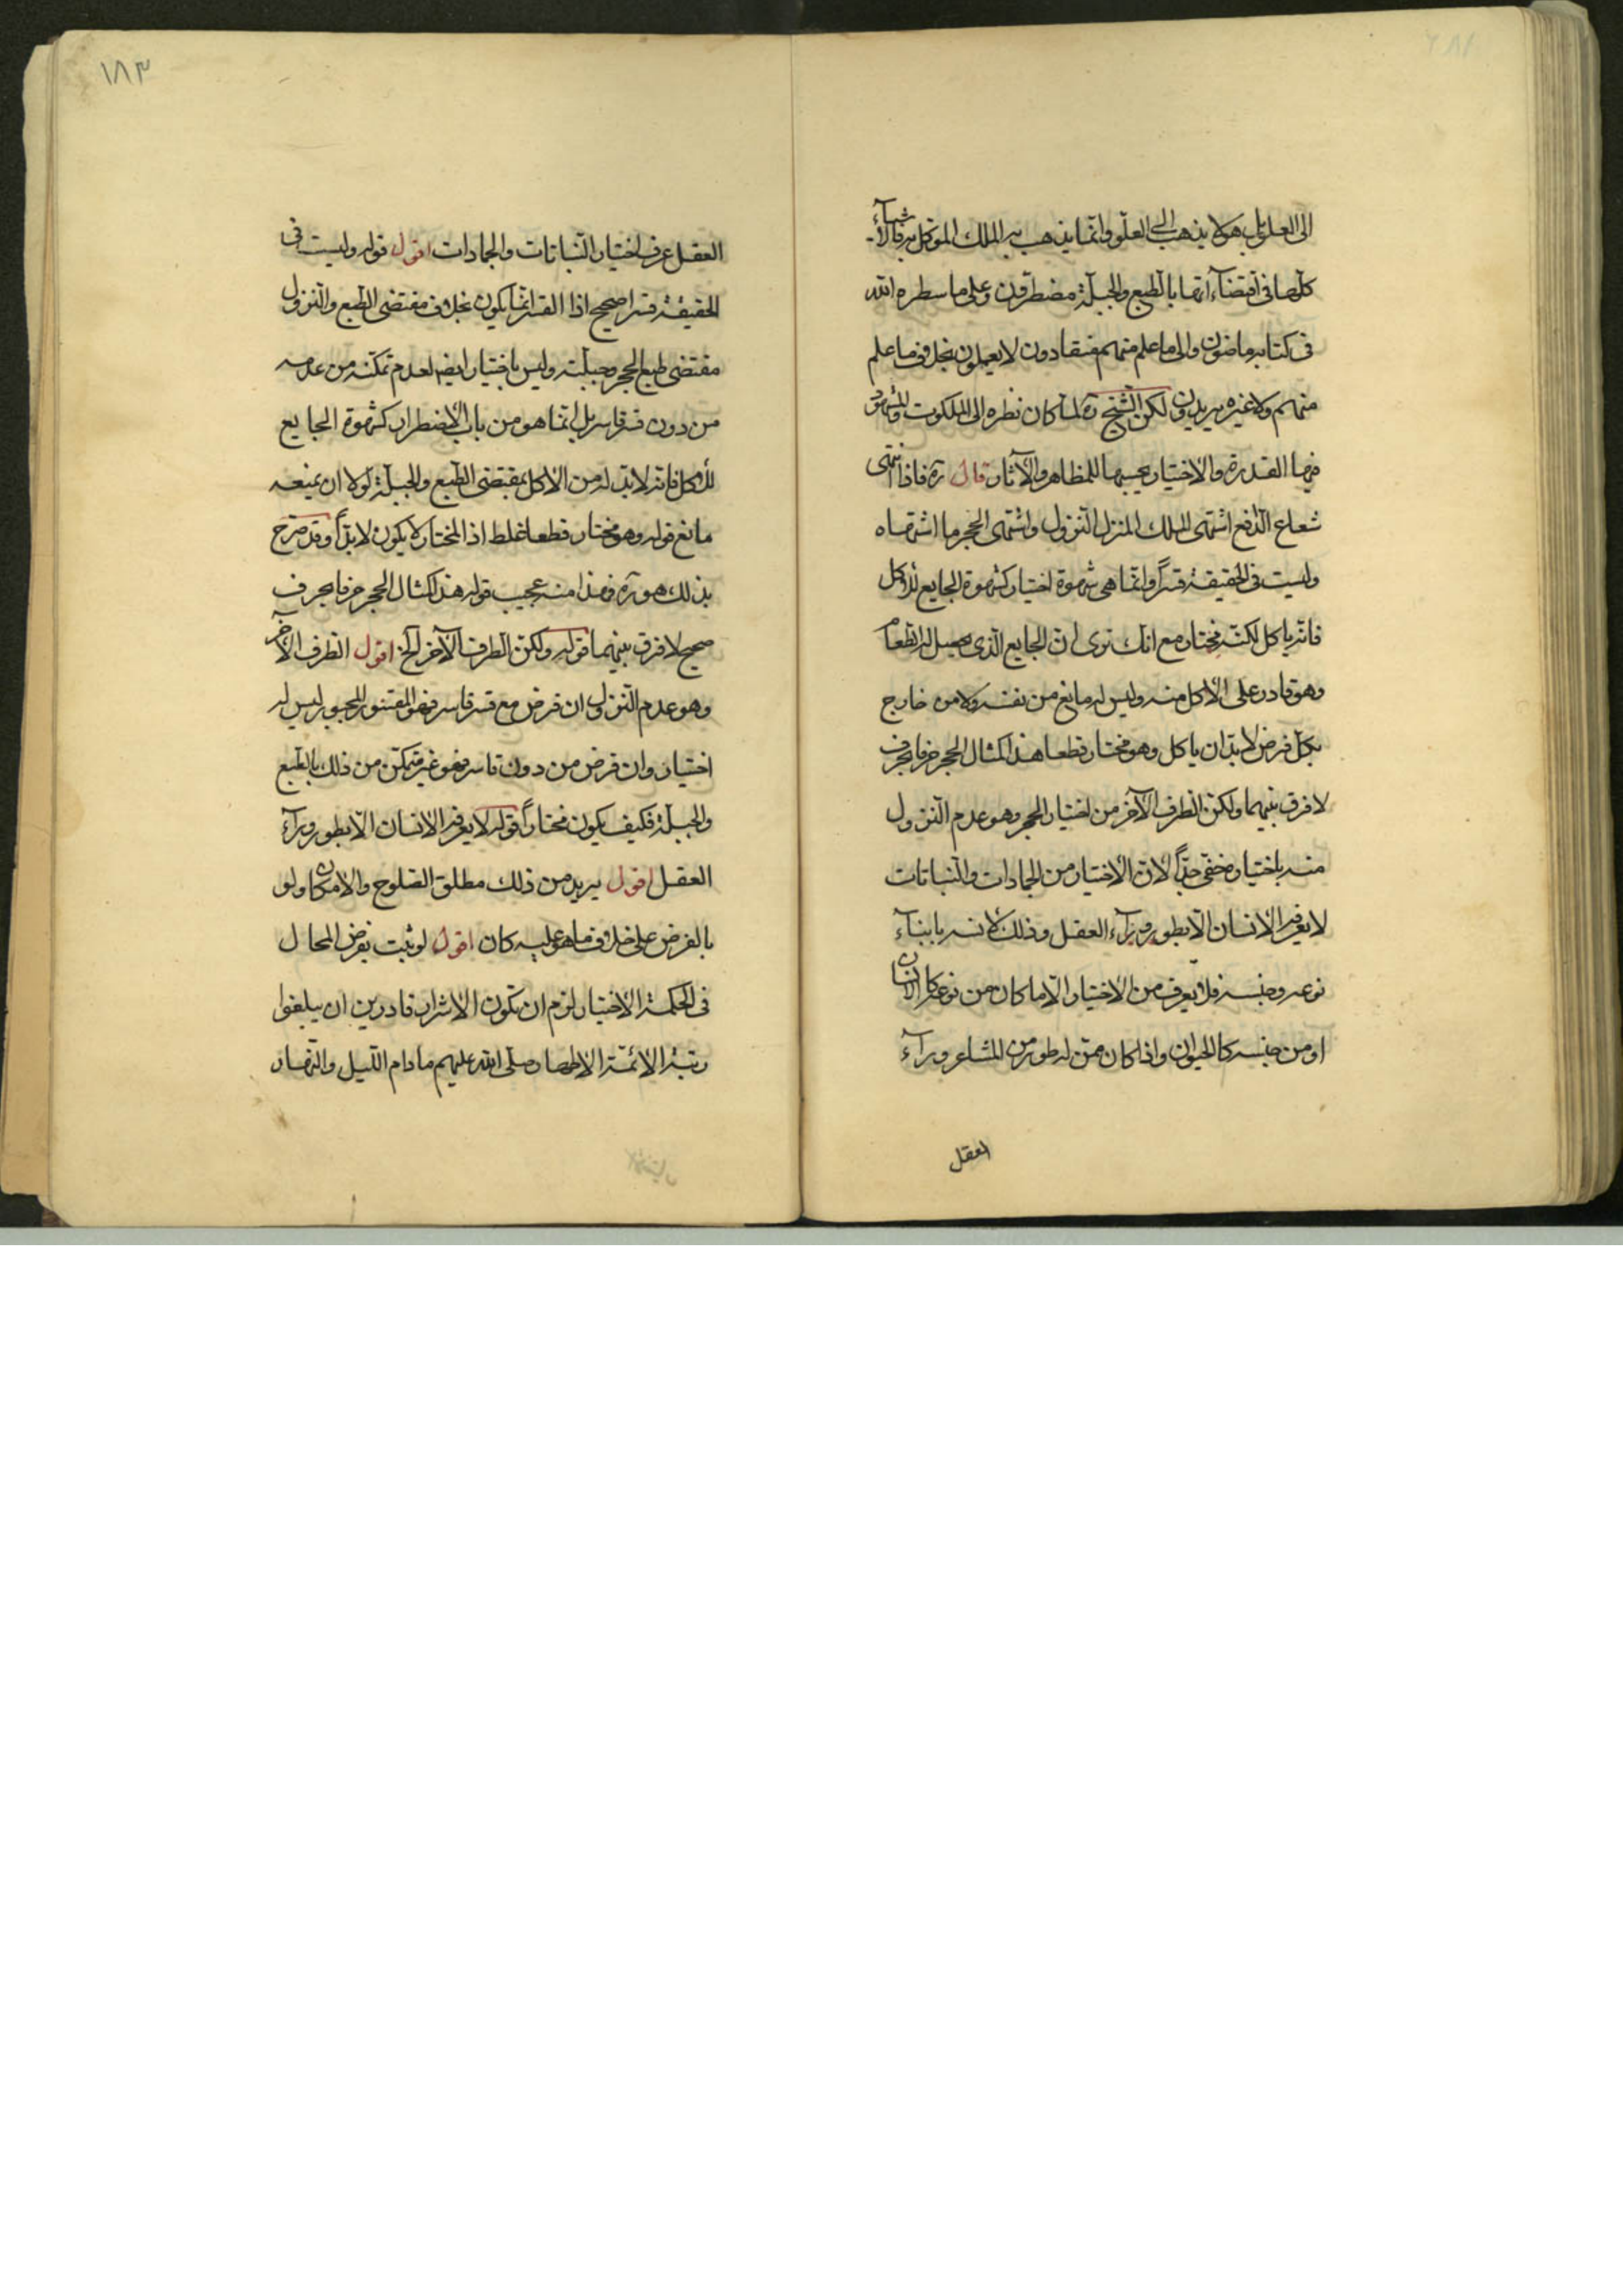 الى العلو بل هو لا يذهب الى العلو وانما يذهب به الملك الموكل به فالاشياء
كلها فى اقتضاآتها بالطبع والجبلة مضطرون وعلى ما سطره الله
فى كتابه ماضون والى ما علم منهم منقادون لا يعملون بخلاف ما علم
منهم ولا غيره يريدون لكن الشيخ ره لما كان نظره الى الملكوت والشهود
فيها القدرة والاختيار بحسبها للمظاهر والآثار قال ره فاذا انتهى
شعاع الدفع اشتهى الملك المنزل النزول واشتهى الحجر ما اشتهاه
وليست فى الحقيقة قسرا وانما هى شهوة اختيار كشهوة الجايع للاكل
فانه ياكل لكنه مختار مع انك ترى ان الجايع الذى حصل له الطعام
وهو قادر على الاكل منه وليس له مانع من نفسه ولا من خارج
بكل فرض لا بد ان ياكل وهو مختار قطعا هذا كمثال الحجر حرفا بحرف
لا فرق بينهما ولكن الطرف الآخر من اختيار الحجر وهو عدم النزول
منه باختياره خفى جدا لان الاختيار من الجمادات والنباتات
لا يعرفه الانسان الا بطور ورآء العقل وذلك لانسه بابناء
نوعه وجنسه فلا يعرف من الاختيار الا ما كان من نوعه كالانسان
او من جنسه كالحيوان واذا كان ممن له طور من المشاعر ورآء
العقل
١٨٣
العقل عرف اختيار النباتات والجمادات اقول قوله وليست فى
الحقيقة قسرا صحيح اذا القسر انما يكون بخلاف مقتضى الطبع والنزول
مقتضى طبع الحجر وجبلته وليس باختيار ايضا لعدم تمكنه من عدمه
من دون قسر قاسر بل انما هو من باب الاضطرار كشهوة الجايع
للاكل فانه لا بد له من الاكل بمقتضى الطبع والجبلة لولا ان يمنعه
مانع قوله وهو مختار قطعا غلط اذ المختار لا يكون لا بدا وقد صرح
بذلك هو ره فهذا منه عجيب قوله هذا كمثال الحجر حرفا بحرف
صحيح لا فرق بينهما قوله ولكن الطرف الآخر الخ اقول الطرف الآخر
وهو عدم النزول ان فرض مع قسر قاسر فهو المقسور المجبور ليس له
اختيار وان فرض من دون قاسر فهو غير متمكن من ذلك بالطبع
والجبلة فكيف يكون مختارا قوله لا يعرفه الانسان الا بطور ورآء
العقل اقول يريد من ذلك مطلق الصلوح والامكان ولو
بالفرض على خلاف ما هو عليه كان اقول لو ثبت بفرض المحال
فى الحكمة الاختيار لزم ان تكون الاشرار قادرين ان يبلغوا
رتبة الائمة الاطهار صلى الله عليهم ما دام الليل والنهار